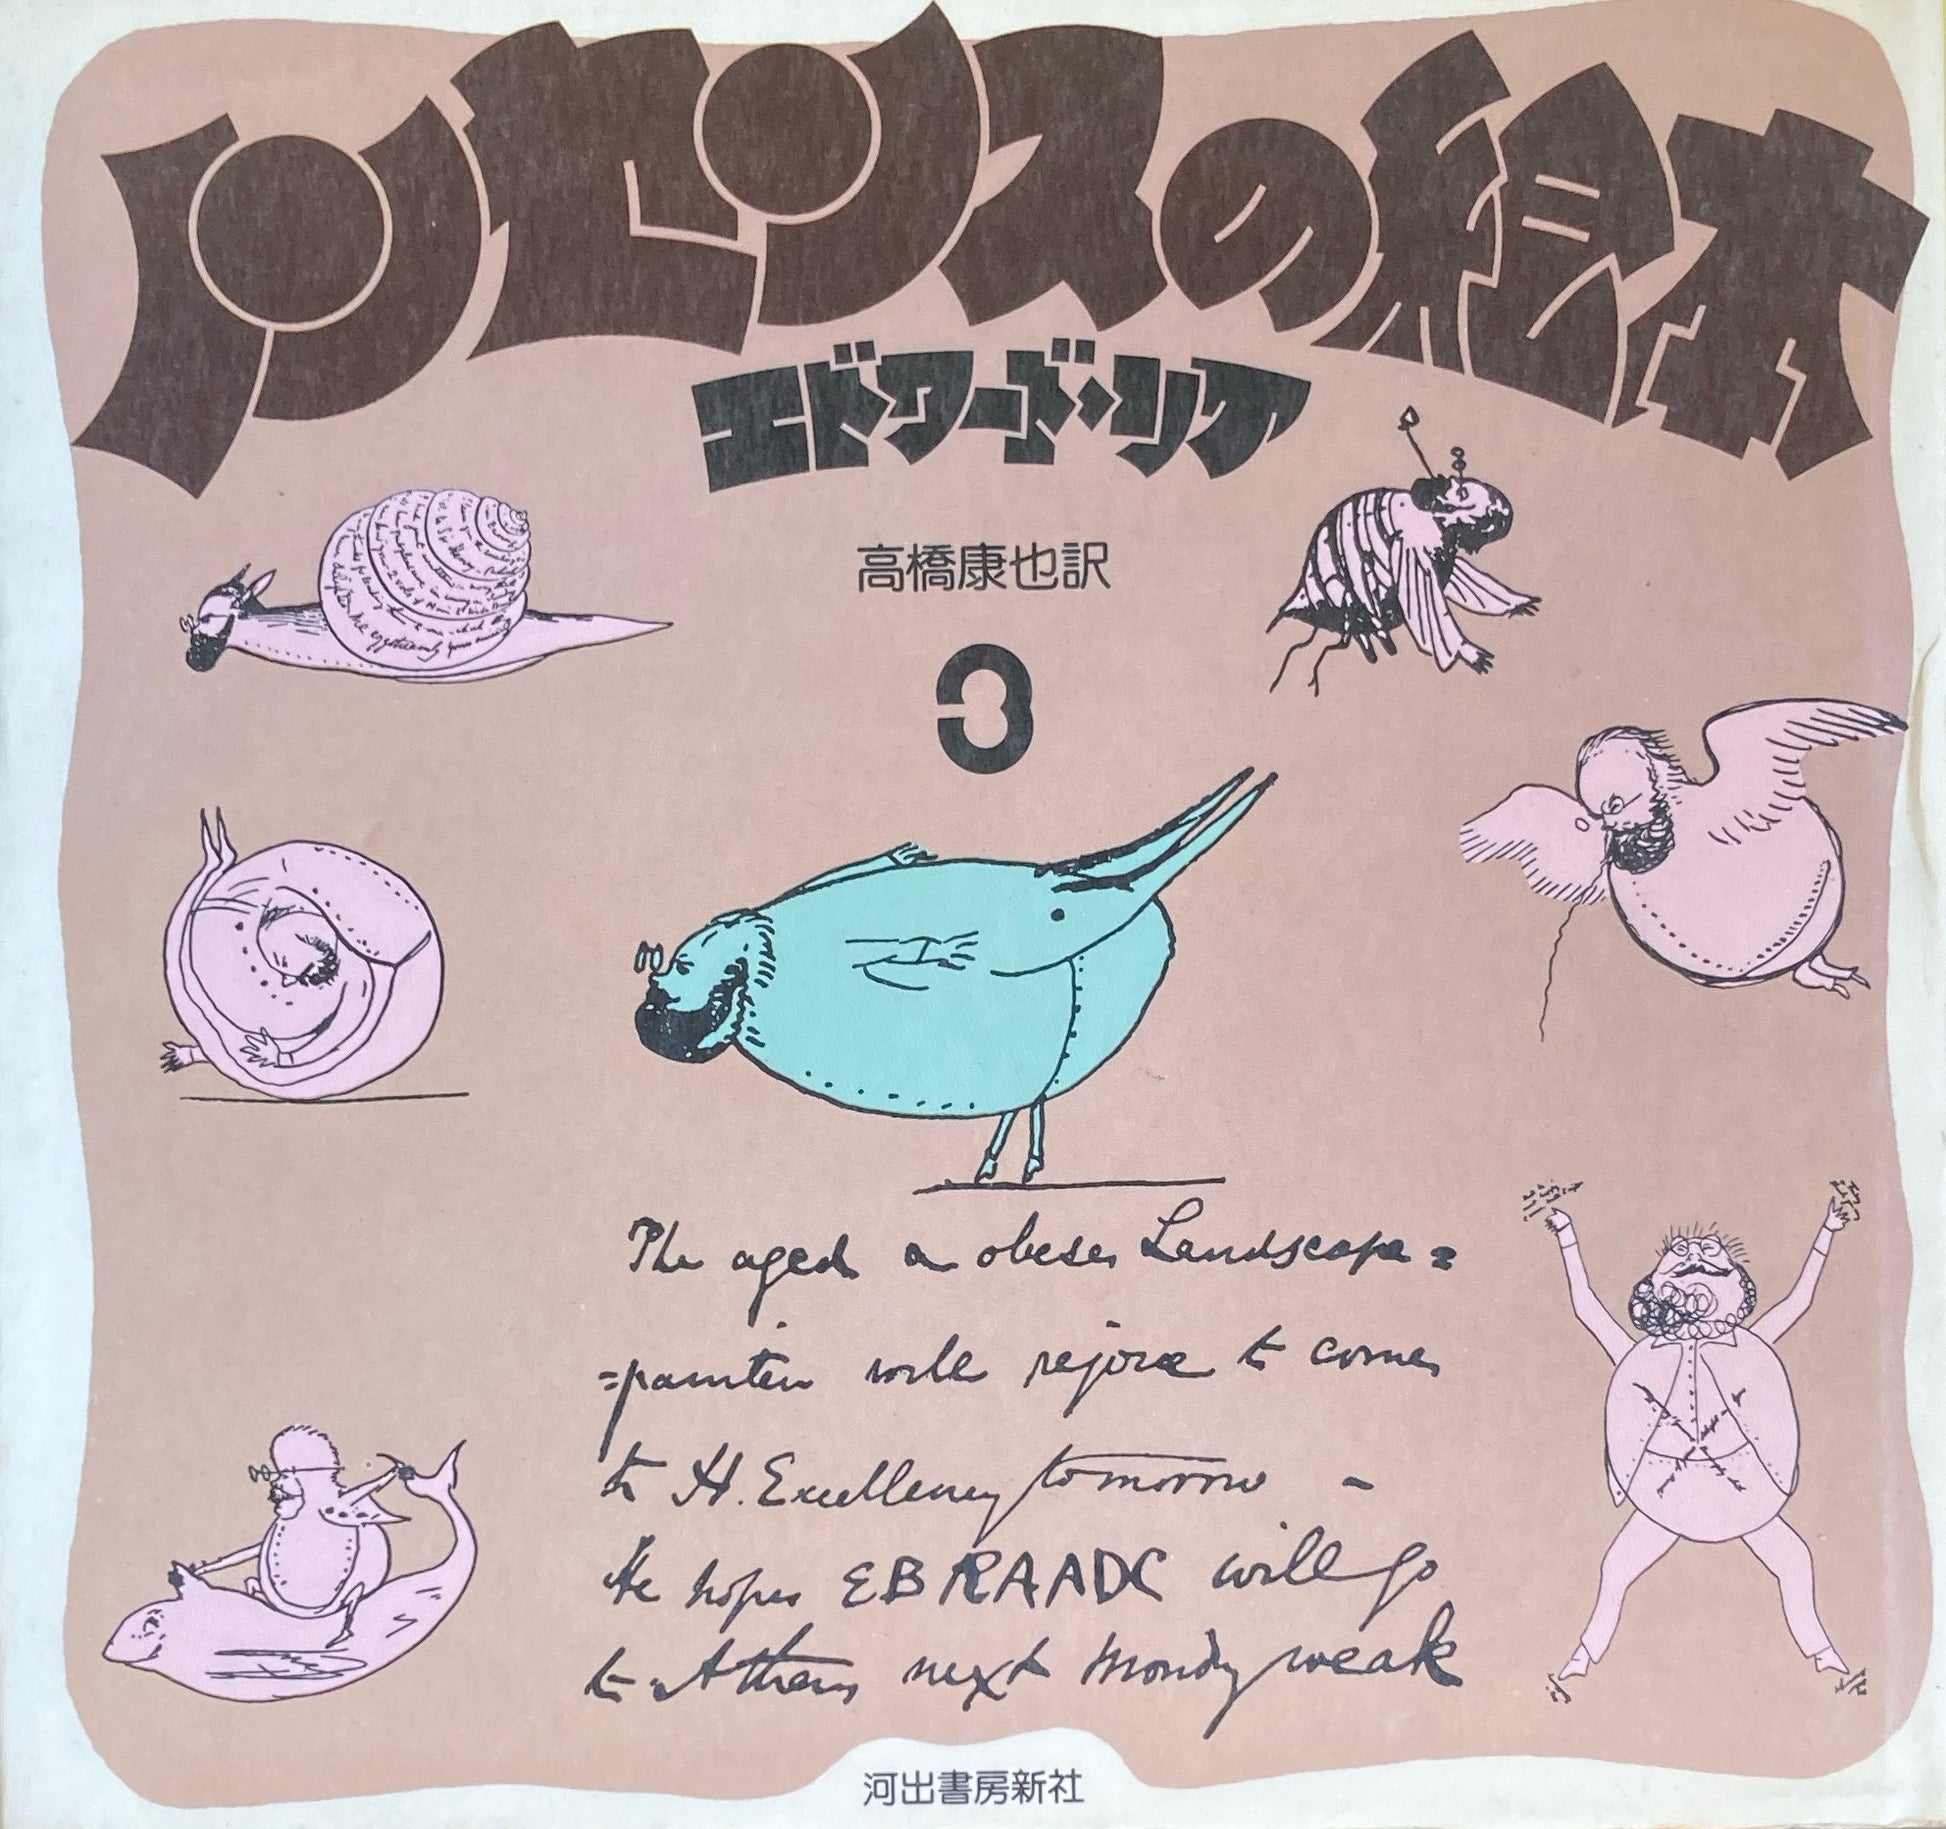 ナンセンスの絵本
エドワード・リア
高橋康也訳
3
The aged & obese Landscape=
=painter will rejoice to come
to H. Excellency tomorrow -
He hopes EBRAADC will go
to Athens next Mondy weak
河出書房新社